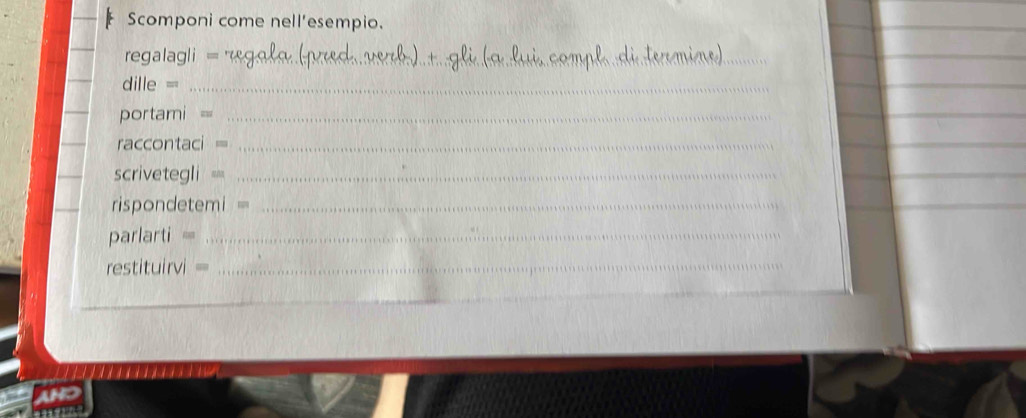 Scomponi come nell'esempio.
regalagli = regala (pred. verb.) + gli (a lui, compl. di termine)
dille =
portami =
raccontaci =
scrivetegli =
rispondetemi =
parlarti =
restituirvi =